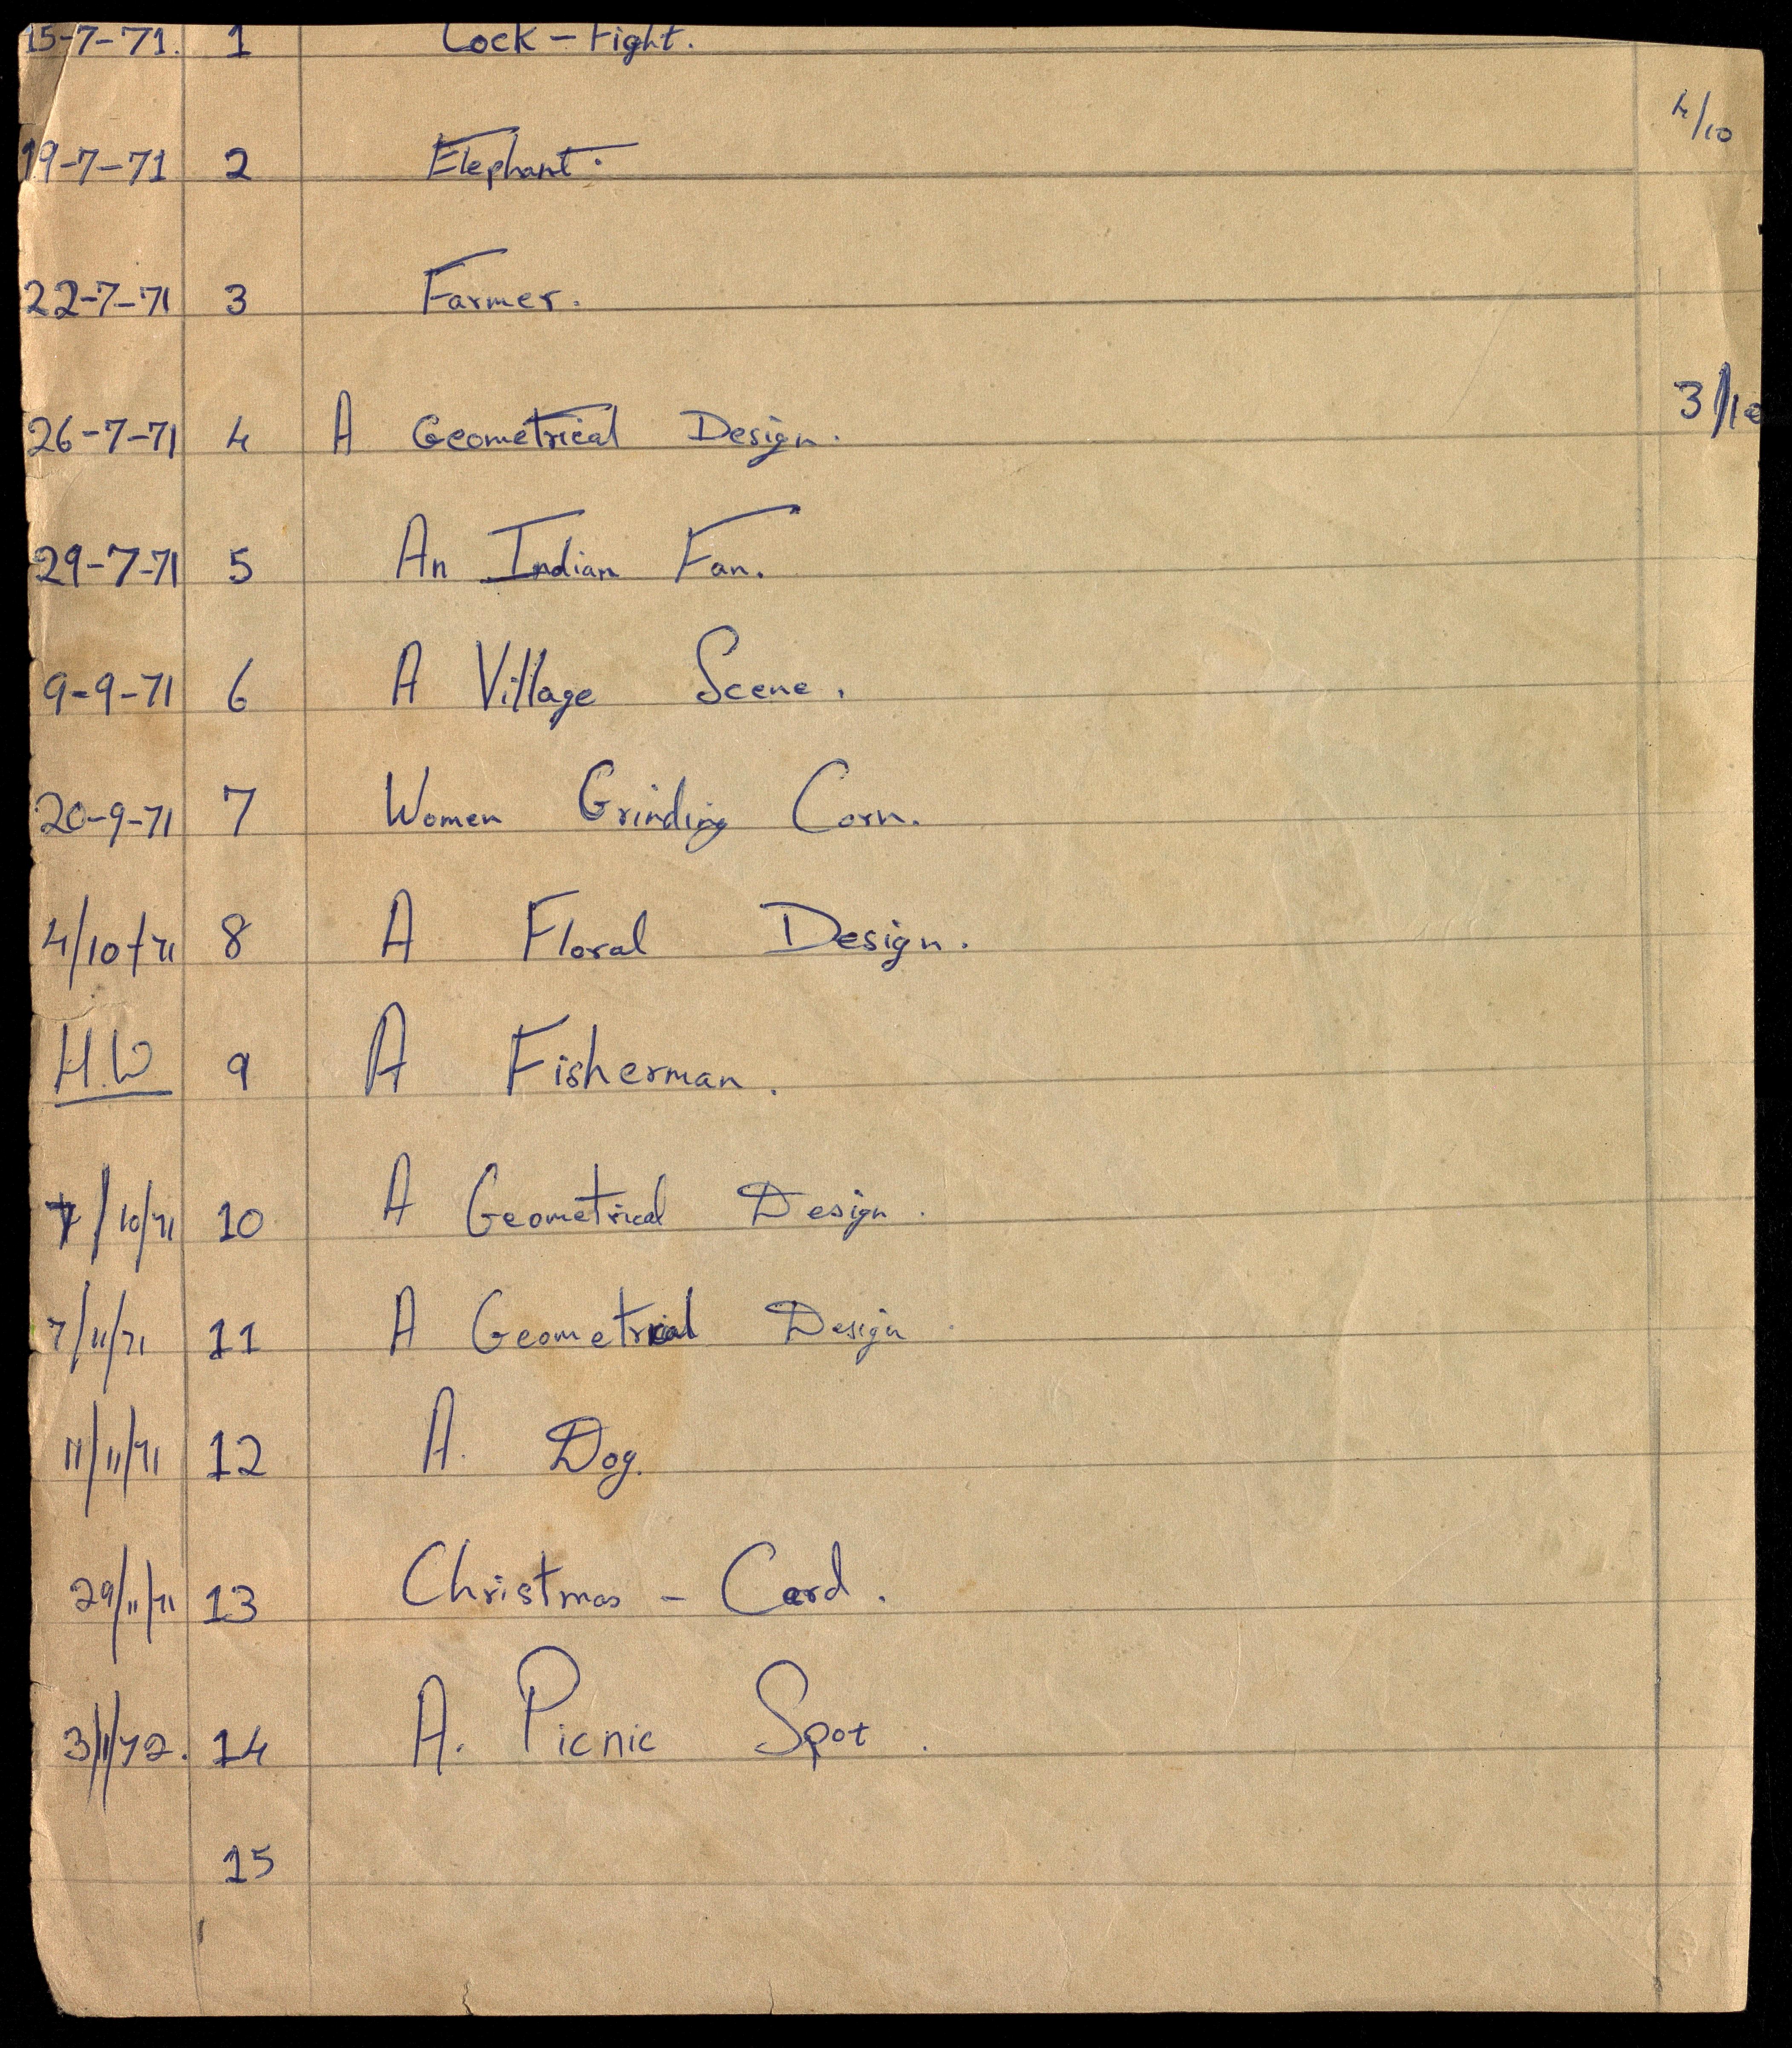 15-7-71. 1 Cock - Fight.
4/10
19-7-71 2 Elephant.
22-7-71 3 Farmer.
3/10
26-7-71 4 A Geometrical Design.
29-7-71 5 An Indian Fan.
9-9-71 6 A Village Scene.
20-9-71 7 Women Grinding Corn.
4/10/71 8 A Floral Design.
H.W 9 A Fisherman.
7/10/71 10 A Geometrical Design.
7/11/71 11 A Geometrical Design.
11/11/71 12 A. Dog.
29/11/71 13 Christmas - Card.
3/1/72. 14 A. Picnic Spot.
15